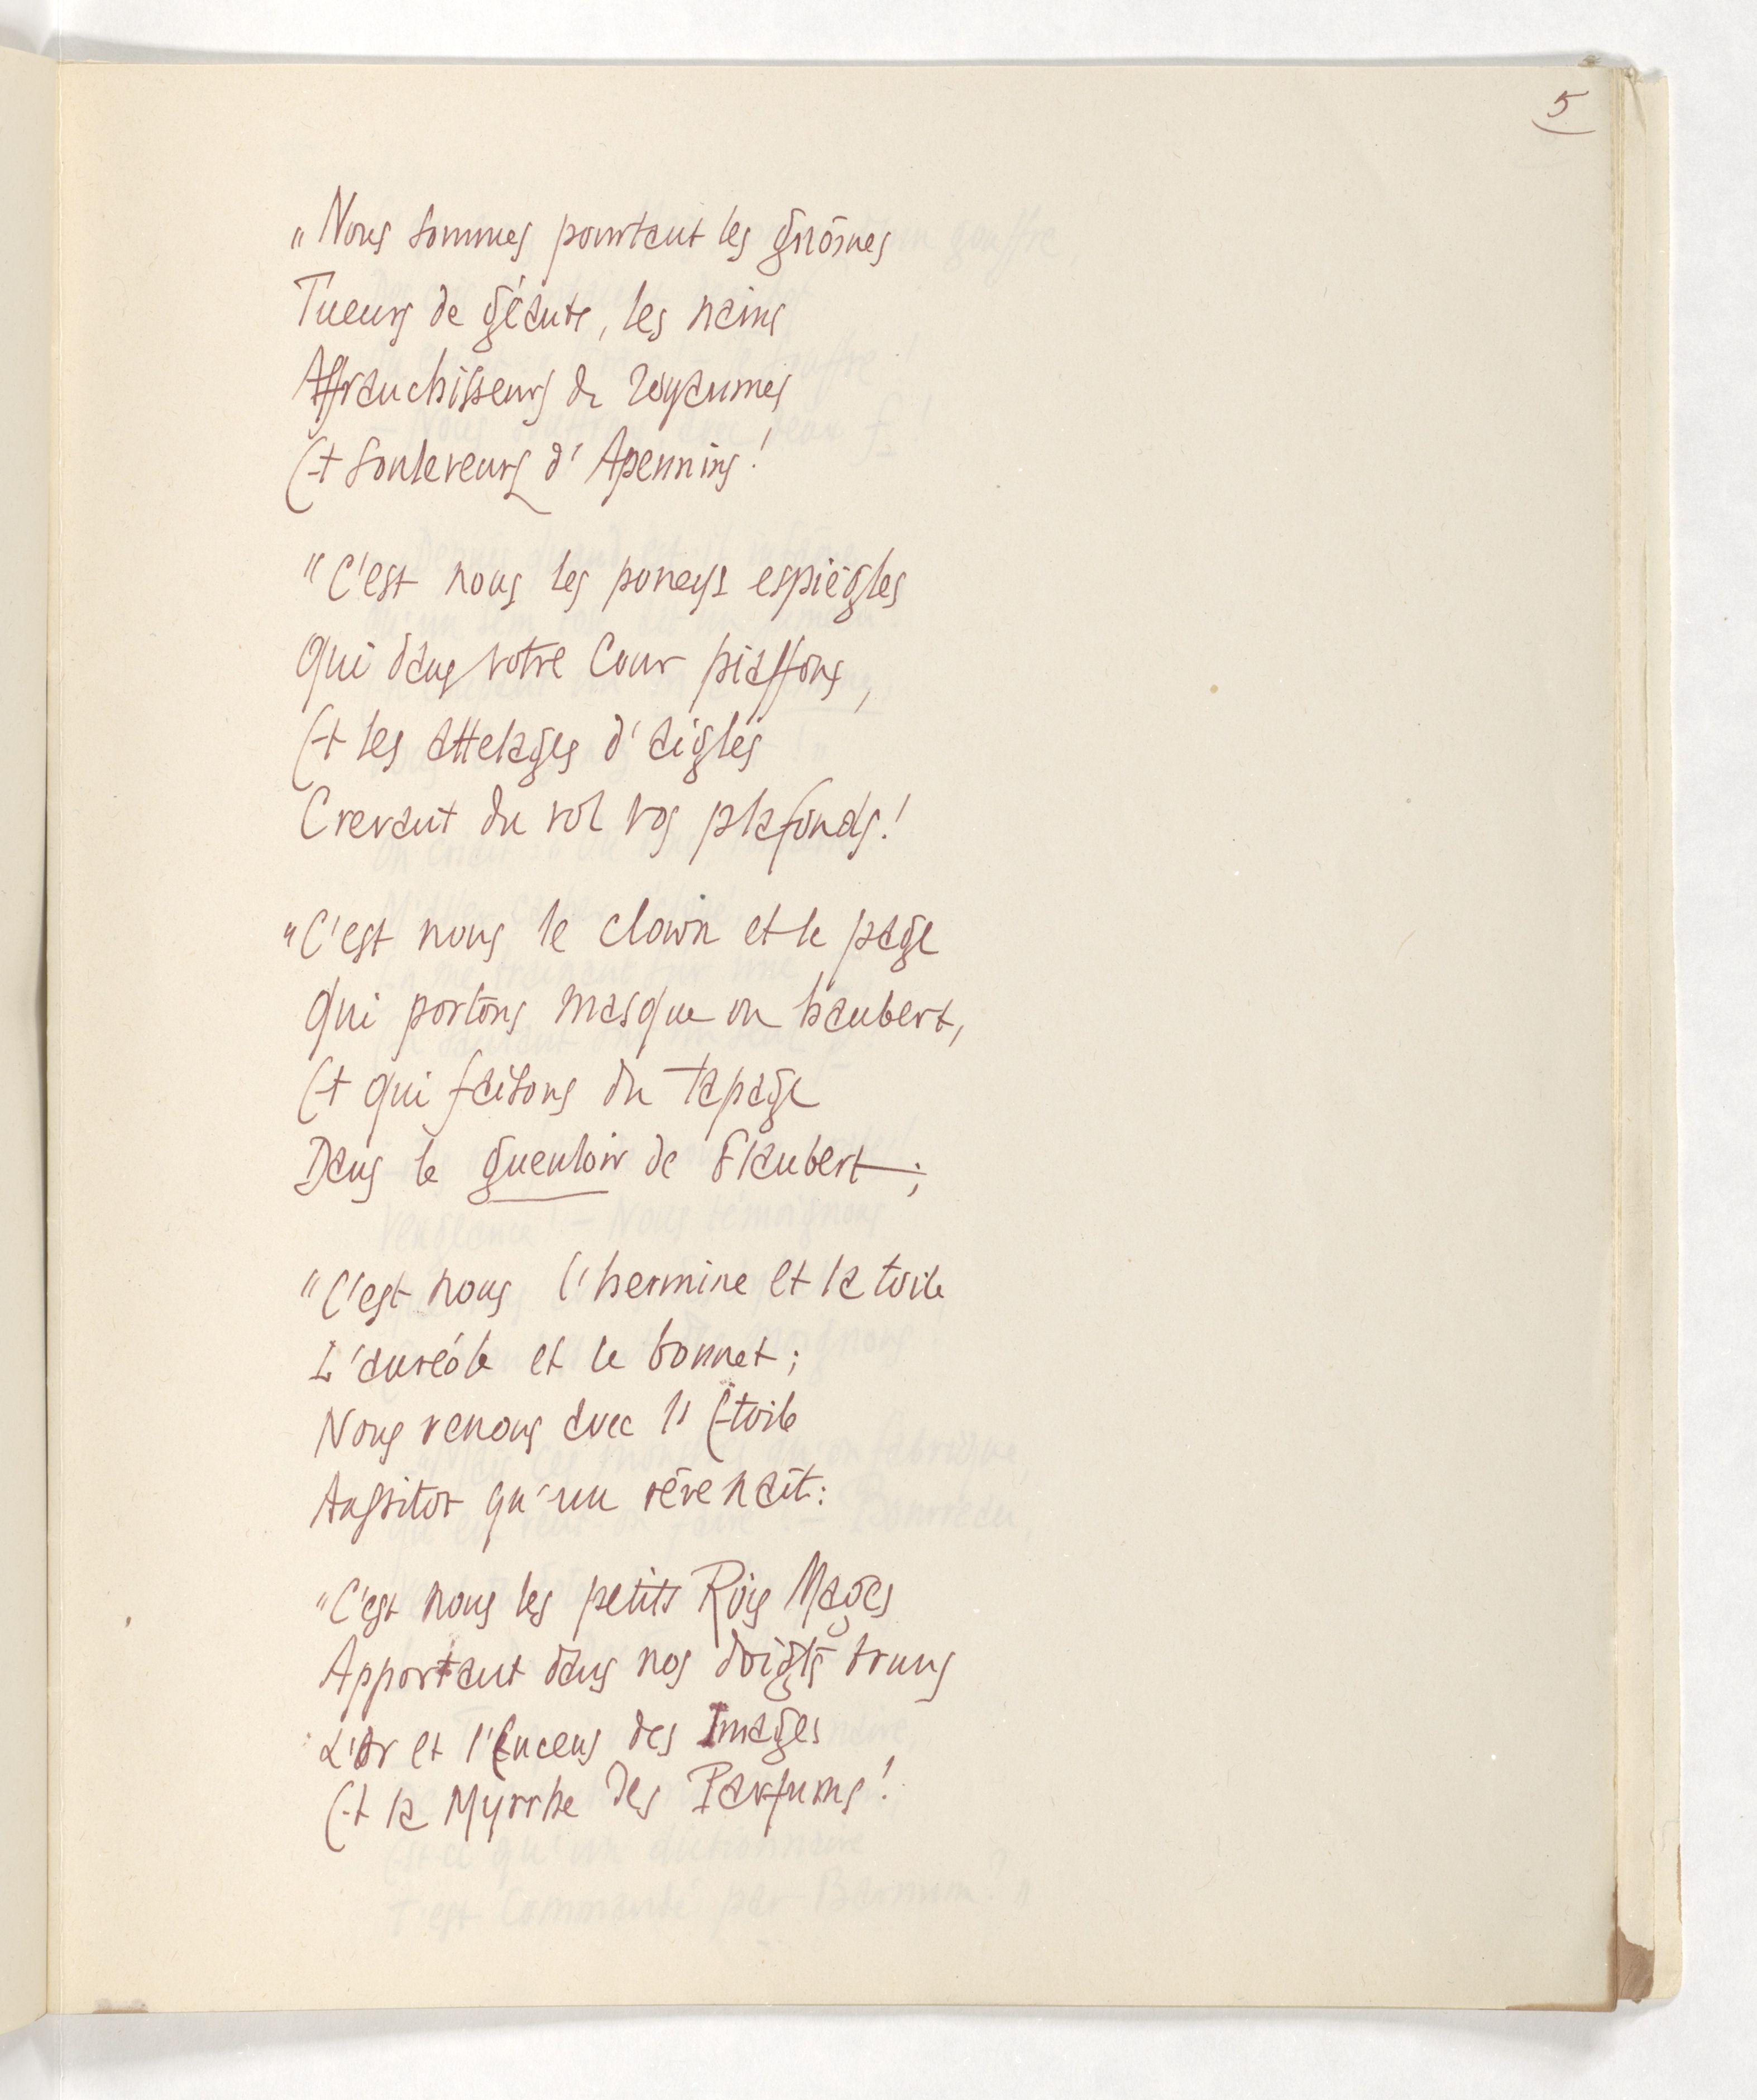 5
"Nous sommes pourtant les gnômes
Tueurs de géants, les nains
Affranchisseurs de royaumes
Et souleveurs d'Apennins!
"C'est nous les poneys espiègles
Qui dans votre cour piaffons,
Et les attelages d'aigles
Crevant du vol vos plafonds!
"C'est nous le clown et le page
Qui portons masque ou haubert,
Et qui faisons du tapage
Dans le gueuloir de Flaubert;
"C'est nous l'hermine et la toile
L'auréole et le bonnet;
Nous venons avec l'Etoile
Aussitot qu'un rêve naît:
"C'est nous les petits Rois Mages
Apportant dans nos doigts bruns
L'Or et l'Encens des Images
Et la Myrrhe des Parfums!